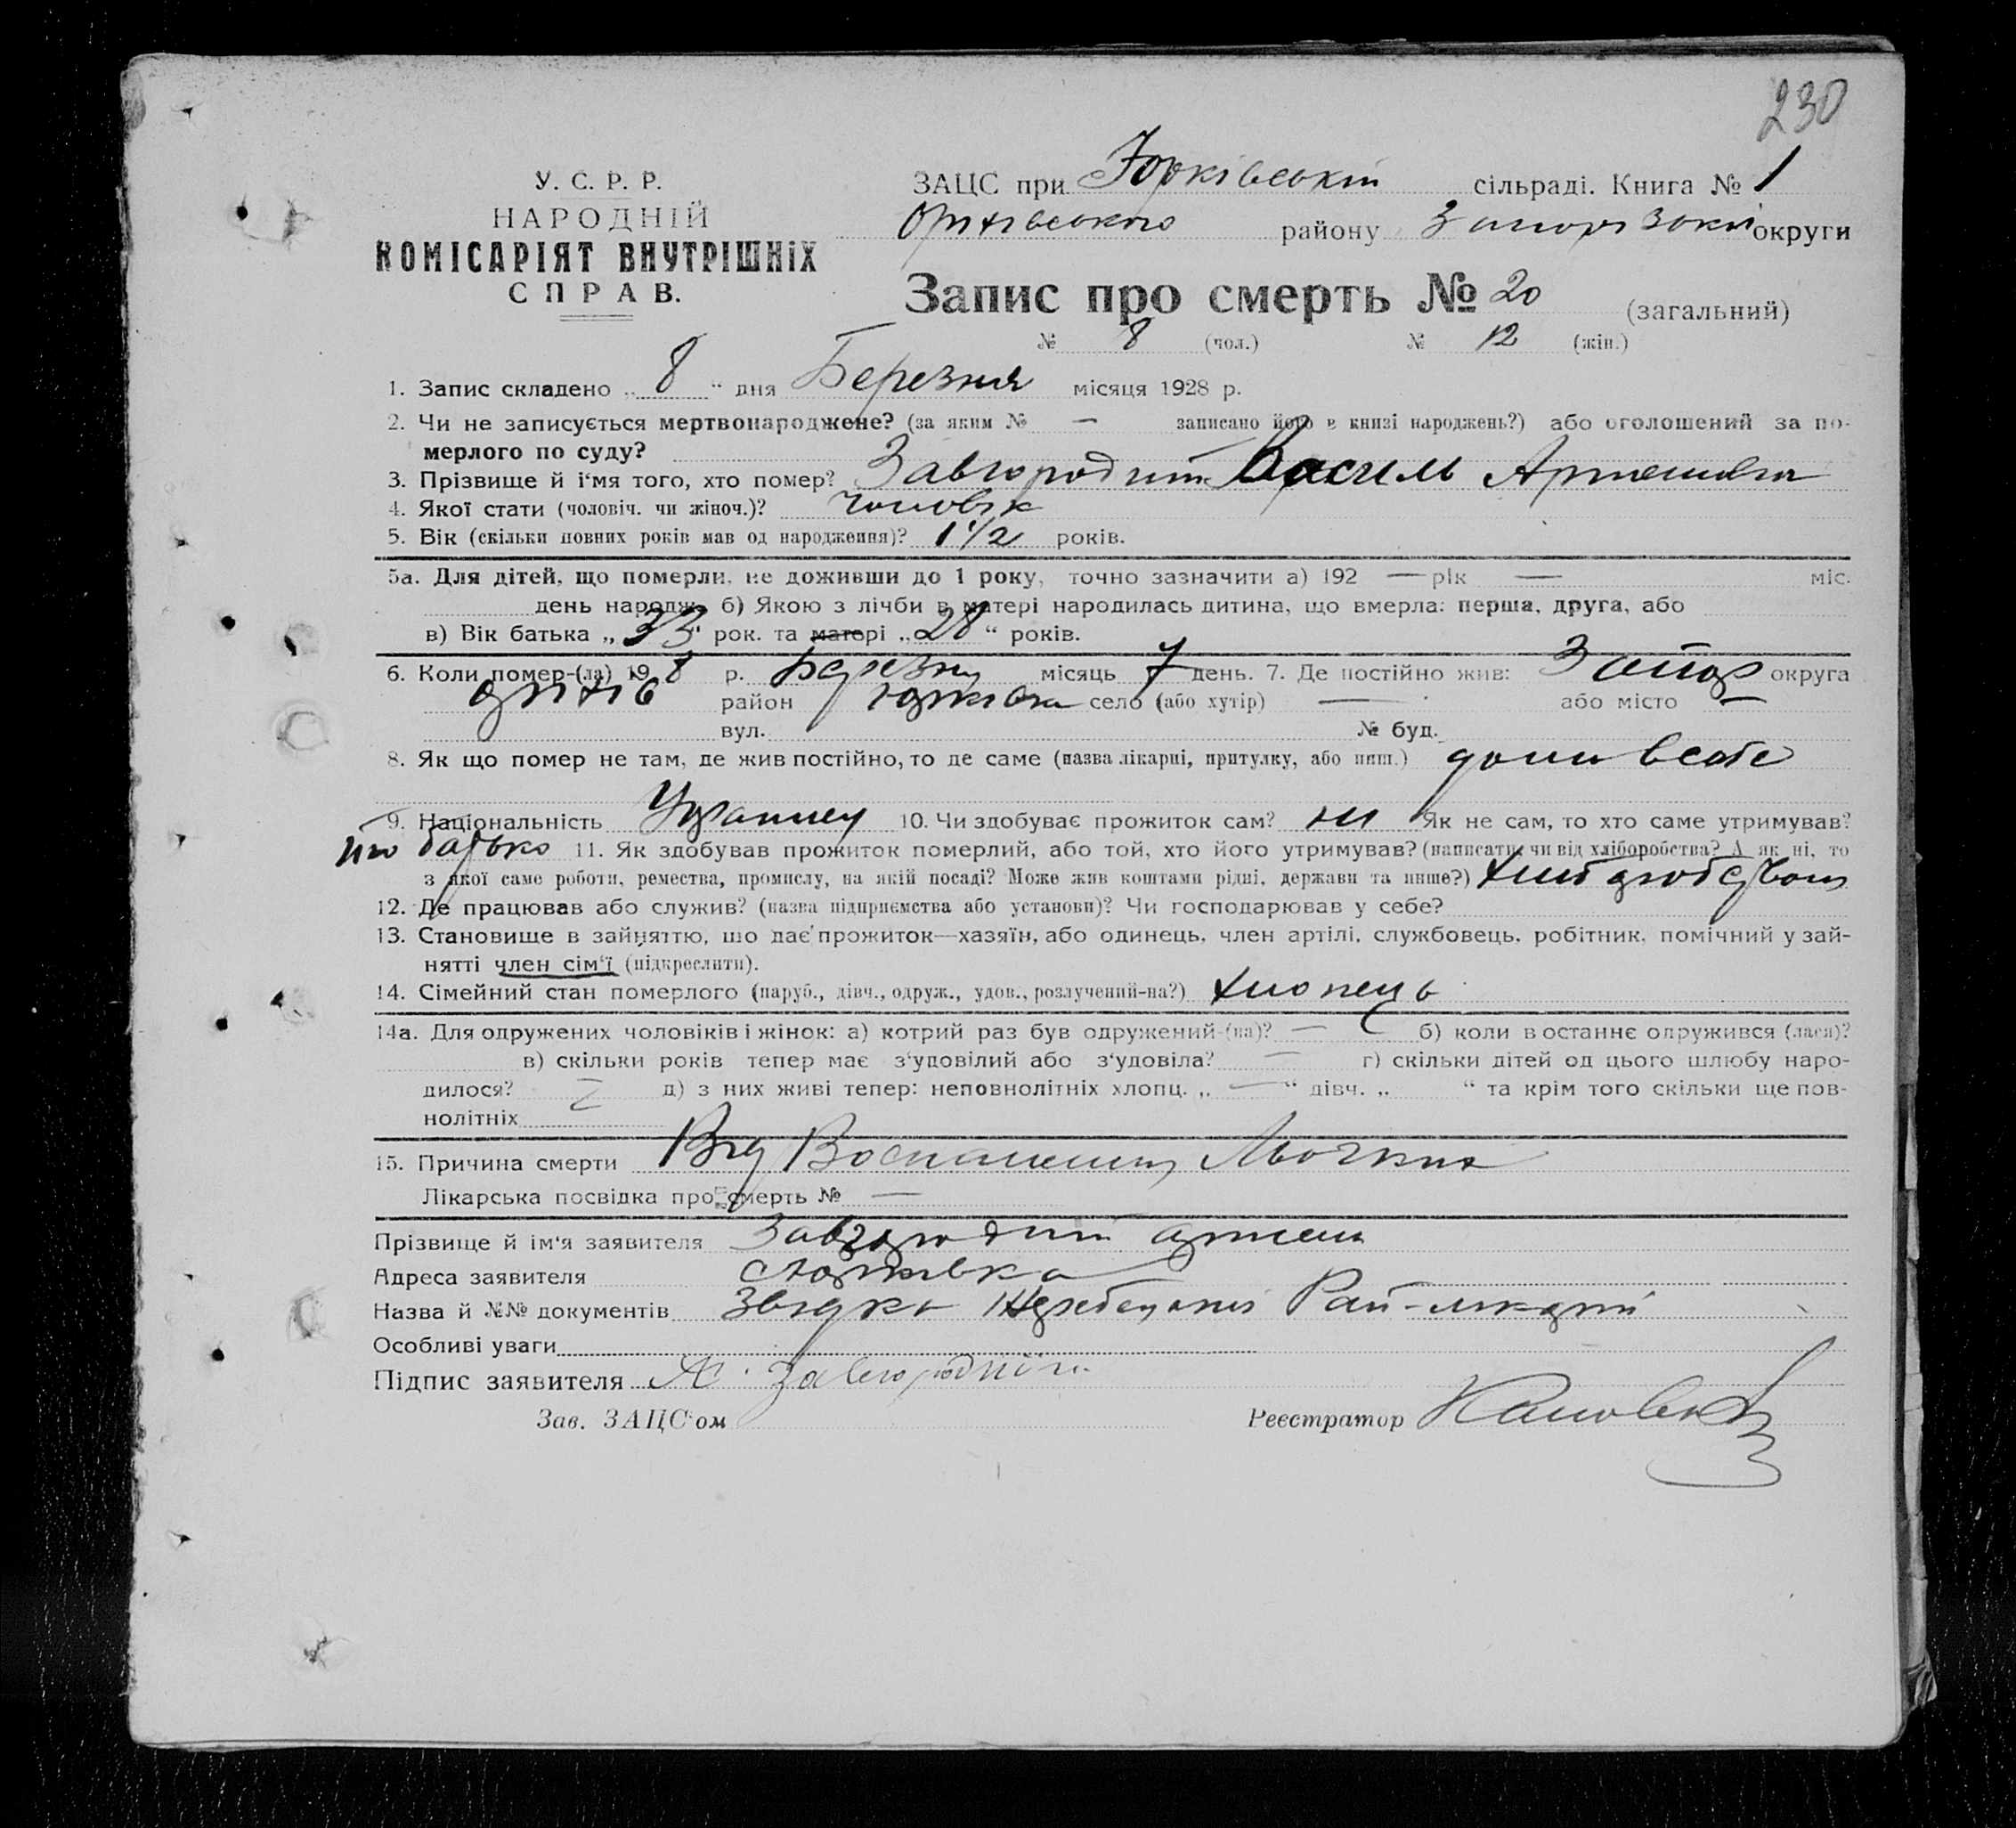 230
У. С. Р. Р.
НАРОДНІЙ
КОМІСАРІЯТ ВНУТРІШНІХ
СПРАВ.
ЗАЦС при Юрківській сільраді. Книга № 1
Оріхівського району Запорізької округи
Запис про смерть № 20 (загальний)
№ 8 (чол.) № 12 (жін.)
1. Запис складено „ 8 “ дня Березня місяця 1928 р.
2. Чи не записується мертвонароджене? (за яким № — записано його в книзі народжень?) або оголошений за по-
мерлого по суду?
3. Прізвище й і‘мя того, хто помер? Завгородний Василь Артемович
4. Якої стати (чоловіч. чи жіноч.)? чоловік
5. Вік (скільки повних років мав од народження)? 1 1/2 років.
5а. Для дітей, що померли, не доживши до 1 року, точно зазначити а) 192 — рік — міс.
день народж. б) Якою з лічби в матері народилась дитина, що вмерла: перша, друга, або
в) Вік батька „ 33 “ рок. та матері „ 28 “ років.
6. Коли помер-(ла) 19 8 р. Березня місяць 7 день. 7. Де постійно жив: Запор округа
Оріхів район Юрківка село (або хутір) — або місто —
вул. № буд.
8. Як що помер не там, де жив постійно, то де саме (назва лікарні, притулку, або инш.) дома в себе
9. Національність Украинец 10. Чи здобуває прожиток сам? ні Як не сам, то хто саме утримував?
його батько 11. Як здобував прожиток померлий, або той, хто його утримував? (написати чи від хліборобства? А як ні, то
з якої саме роботи, ремества, промислу, на якій посаді? Може жив коштами рідні, держави та инше?) хліборобством
12. Де працював або служив? (назва підприємства або установи)? Чи господарював у себе?
13. Становище в зайняттю, що дає прожиток—хазяїн, або одинець, член артілі, службовець, робітник, помічний у зай-
нятті член сім‘ї (підкреслити).
14. Сімейний стан померлого (паруб., дівч., одруж., удов., розлучений-на?) хлопець
14а. Для одружених чоловіків і жінок: а) котрий раз був одружений-(на)? — б) коли в останнє одружився (лася)?
в) скільки років тепер має з‘удовілий або з‘удовіла? — г) скільки дітей од цього шлюбу наро-
дилося? — д) з них живі тепер: неповнолітніх хлопц. „ — “ дівч. „ “ та крім того скільки ще пов-
нолітніх
15. Причина смерти Від Воспаления
Лікарська посвідка про смерть № —
Прізвище й ім‘я заявителя Завгородний Артем
Адреса заявителя с Юрківка
Назва й №№ документів
Особливі уваги
Підпис заявителя А. Завгородній
Зав. ЗАЦС‘ом Реєстратор